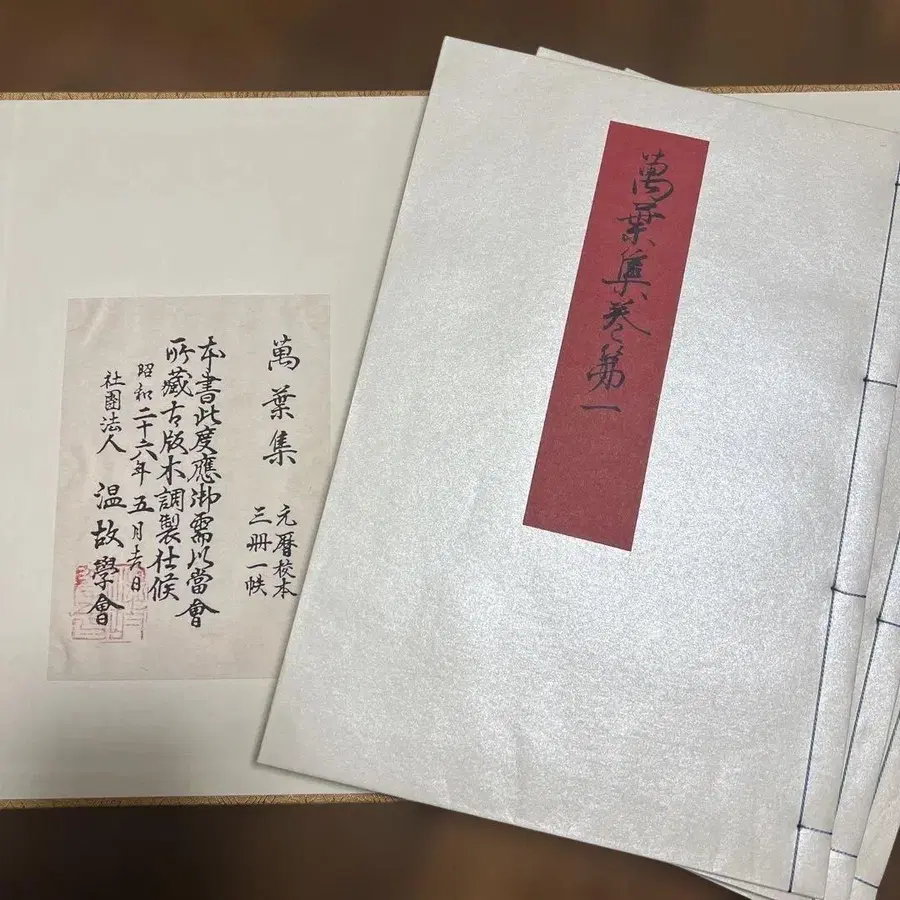 萬葉集巻第一
萬葉集
元暦校本
三冊一帙
本書此度應御需以當會
所藏古版木調製仕候
昭和二十六年五月吉日
社團法人 温故學會